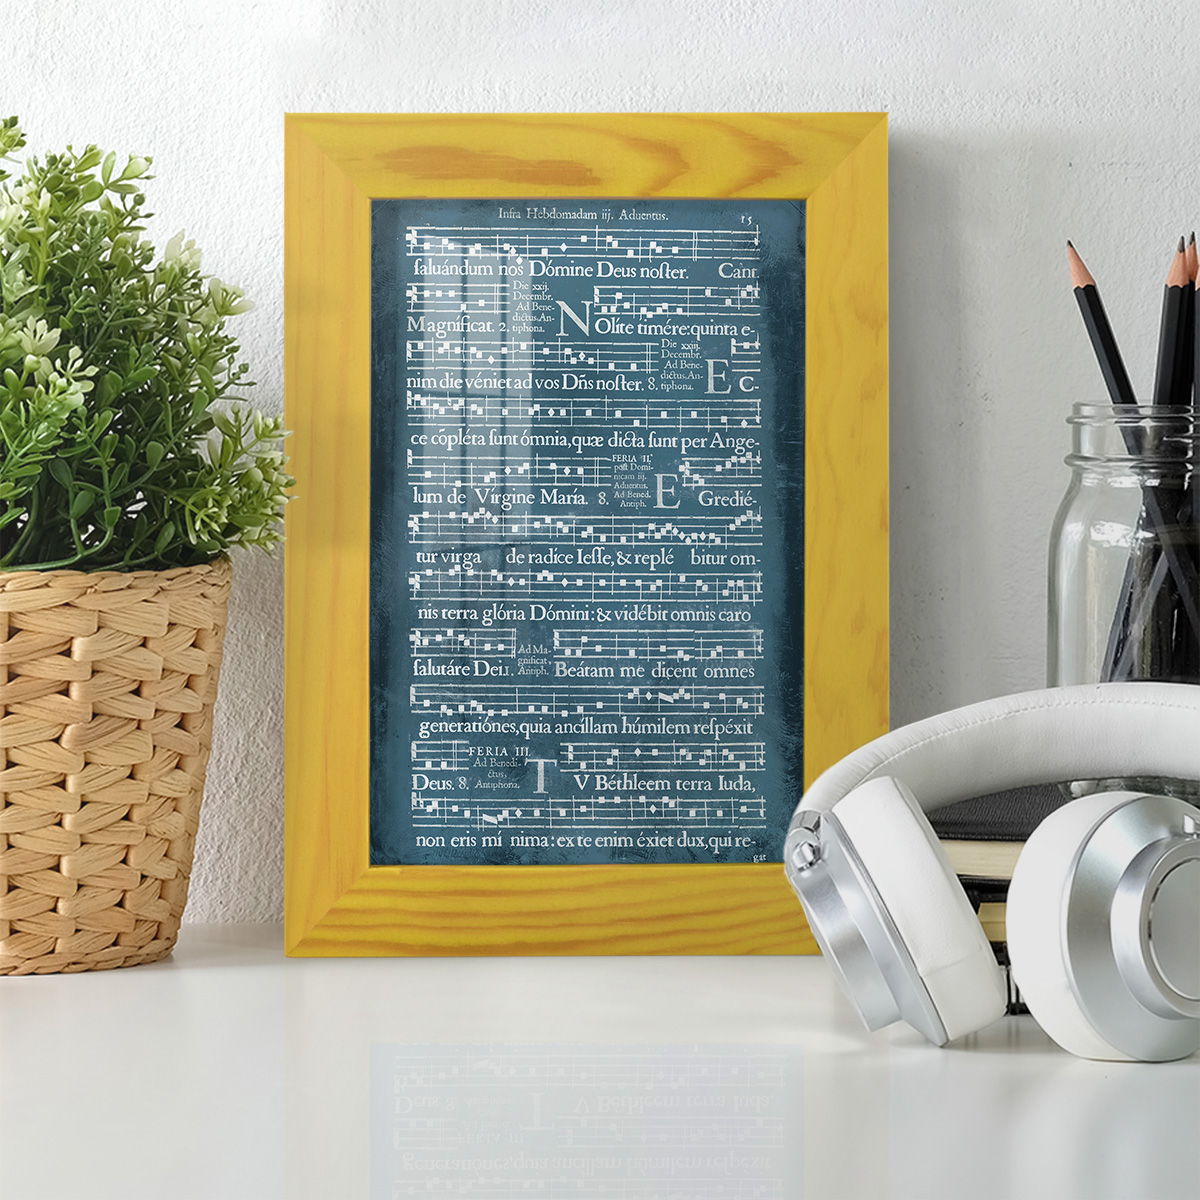 Infra Hebdomadam iij. Aduentus. 15
ſaluándum nos Dómine Deus noſter. Cant.
Magníficat. 2. Die xxij. Decembr. Ad Bene-dictus. An-tiphona. NOlíte timére: quinta e-
nim die véniet ad vos Dñs noſter. 8. Die xxiij. Decembr. Ad Bene-dictus. An-tiphona. EC-
ce cõpléta ſunt ómnia, quæ dicta ſunt per Ange-
lum de Vírgine María. 8. FERIA II. poſt Domi-nicam iij. Aduentus. Ad Bened. Antiph. E Gredié-
tur virga de radíce Ieſſe, & replé bitur om-
nis terra glória Dómini: & vidébit omnis caro
ſalutáre Dei. 1. Ad Ma-gnificat, Antiph. Beátam me dicent omnes
generatiónes, quia ancíllam húmilem reſpéxit
Deus. 8. FERIA III. Ad Benedi-ctus, Antiphona. TV Béthleem terra Iuda,
non eris mí nima: ex te enim éxiet dux, qui re-
gat